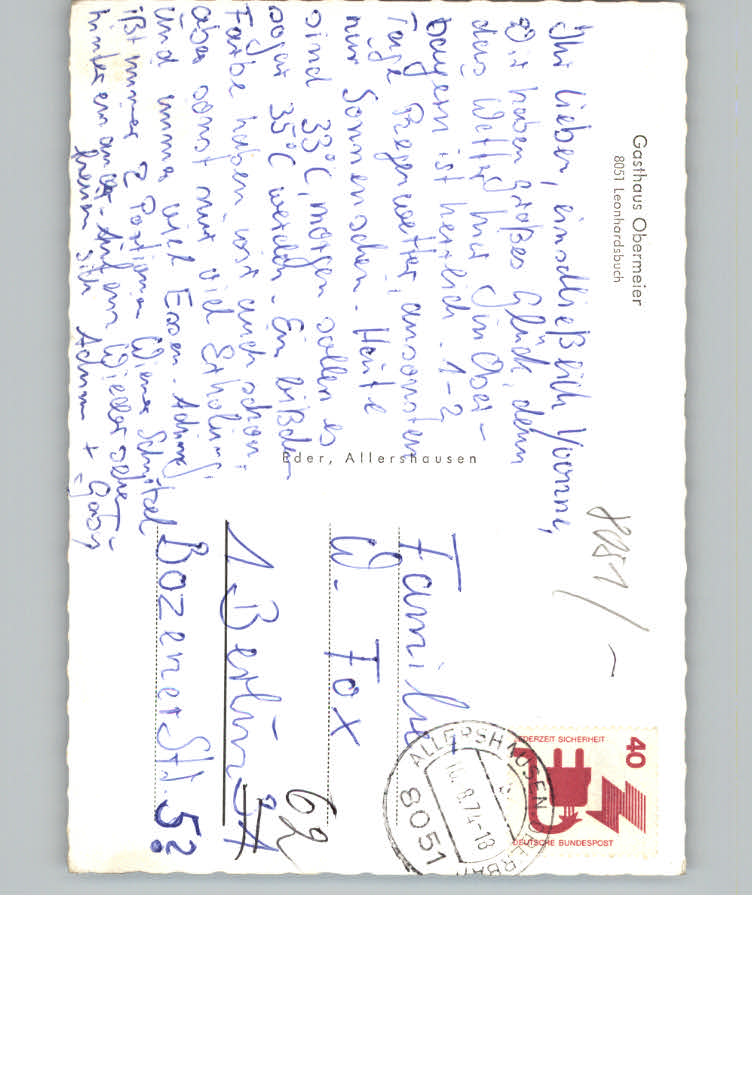 Gasthaus Obermeier
8051 Leonhardsbuch
Ihr Lieben, einschließlich Yvonne,
Wir haben großes Glück, denn
das Wetter hier in Ober-
bayern ist herrlich. 1-2
Tage Regenwetter, ansonsten
nur Sonnenschein. Heute
sind 33°C, morgen sollen es
sogar 35°C werden. Ein bißchen
Farbe haben wir auch schon,
aber sonst nur viel Erholung,
und immer viel Essen. Achim
ißt immer 2 Portionen Wiener Schnitzel
hintereinander. Auf ein Wiedersehen
freuen sich Achim + Gaby
Eder, Allershausen
8051/-
Familie
W. Fox
1 Berlin 31
62
Bozener Str. 5
JEDERZEIT SICHERHEIT
40
DEUTSCHE BUNDESPOST
ALLERSHAUSEN
8.74-18
8051